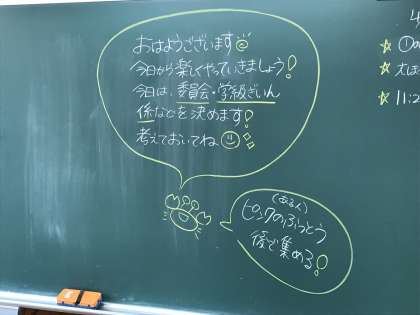 おはようございます
今日から楽しくやっていきましょう!
今日は、委員会・学級ぎいん
係などを決めます!
考えておいてね
(ある人)
ピンクのふうとう
後で集める!
11:2